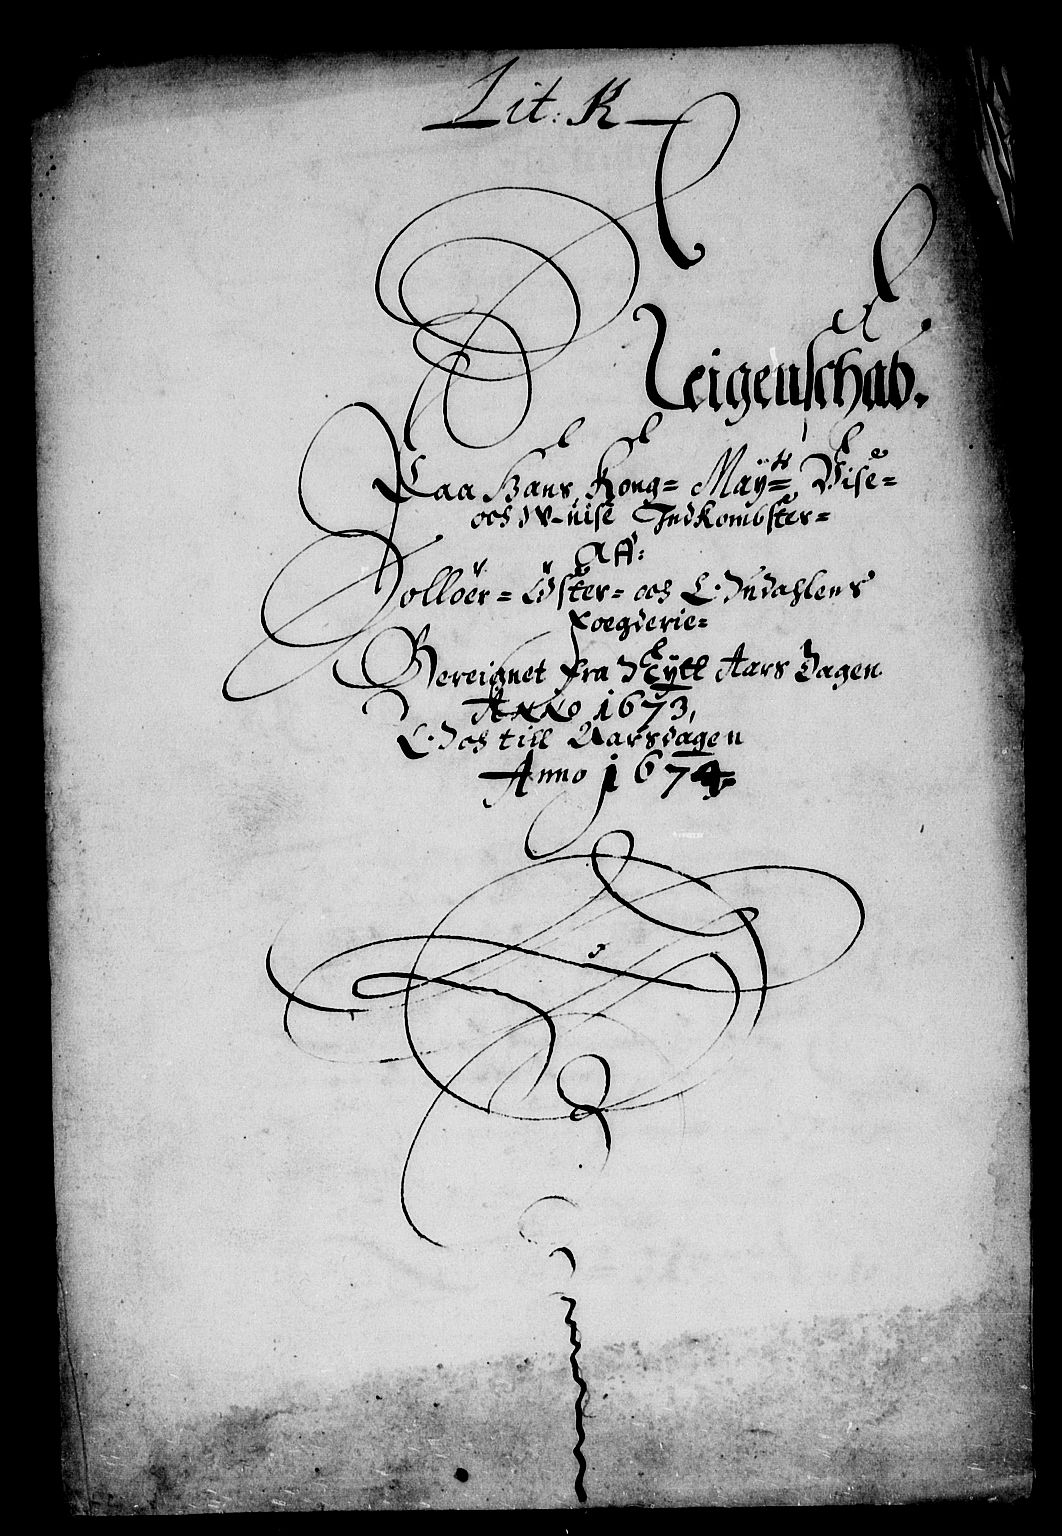 Lit: K
Reigenschab.
Paa Hans Kong= Maÿ:ts Vise=
och W-uise Indkombster=
Aff:
Solløer= Øster= och Odahlens
Foegderie=
Bereignet fra Nÿtt Aars dagen
Anno 1673,
Och till Aarsdagen
Anno 1674=